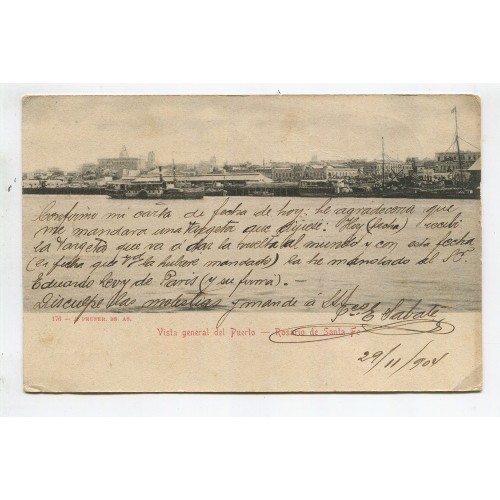 Confirmo mi carta de fecha de hoy: le agradeceria que
me mandara una Tarjeta que dijese: Hoy (fecha) recibi
la Tarjeta que va á dar la vuelta al mundo y con esta fecha
(la fecha que Vd la hubiese mandado) la he mandado al Sr.
Eduardo Levy de Paris (y su firma). —
Disculpe las molestias y mande á S.S.
E Sabate
176 - J. PEUSER, BS. AS.
Vista general del Puerto — Rosario de Santa Fé
29/11/904